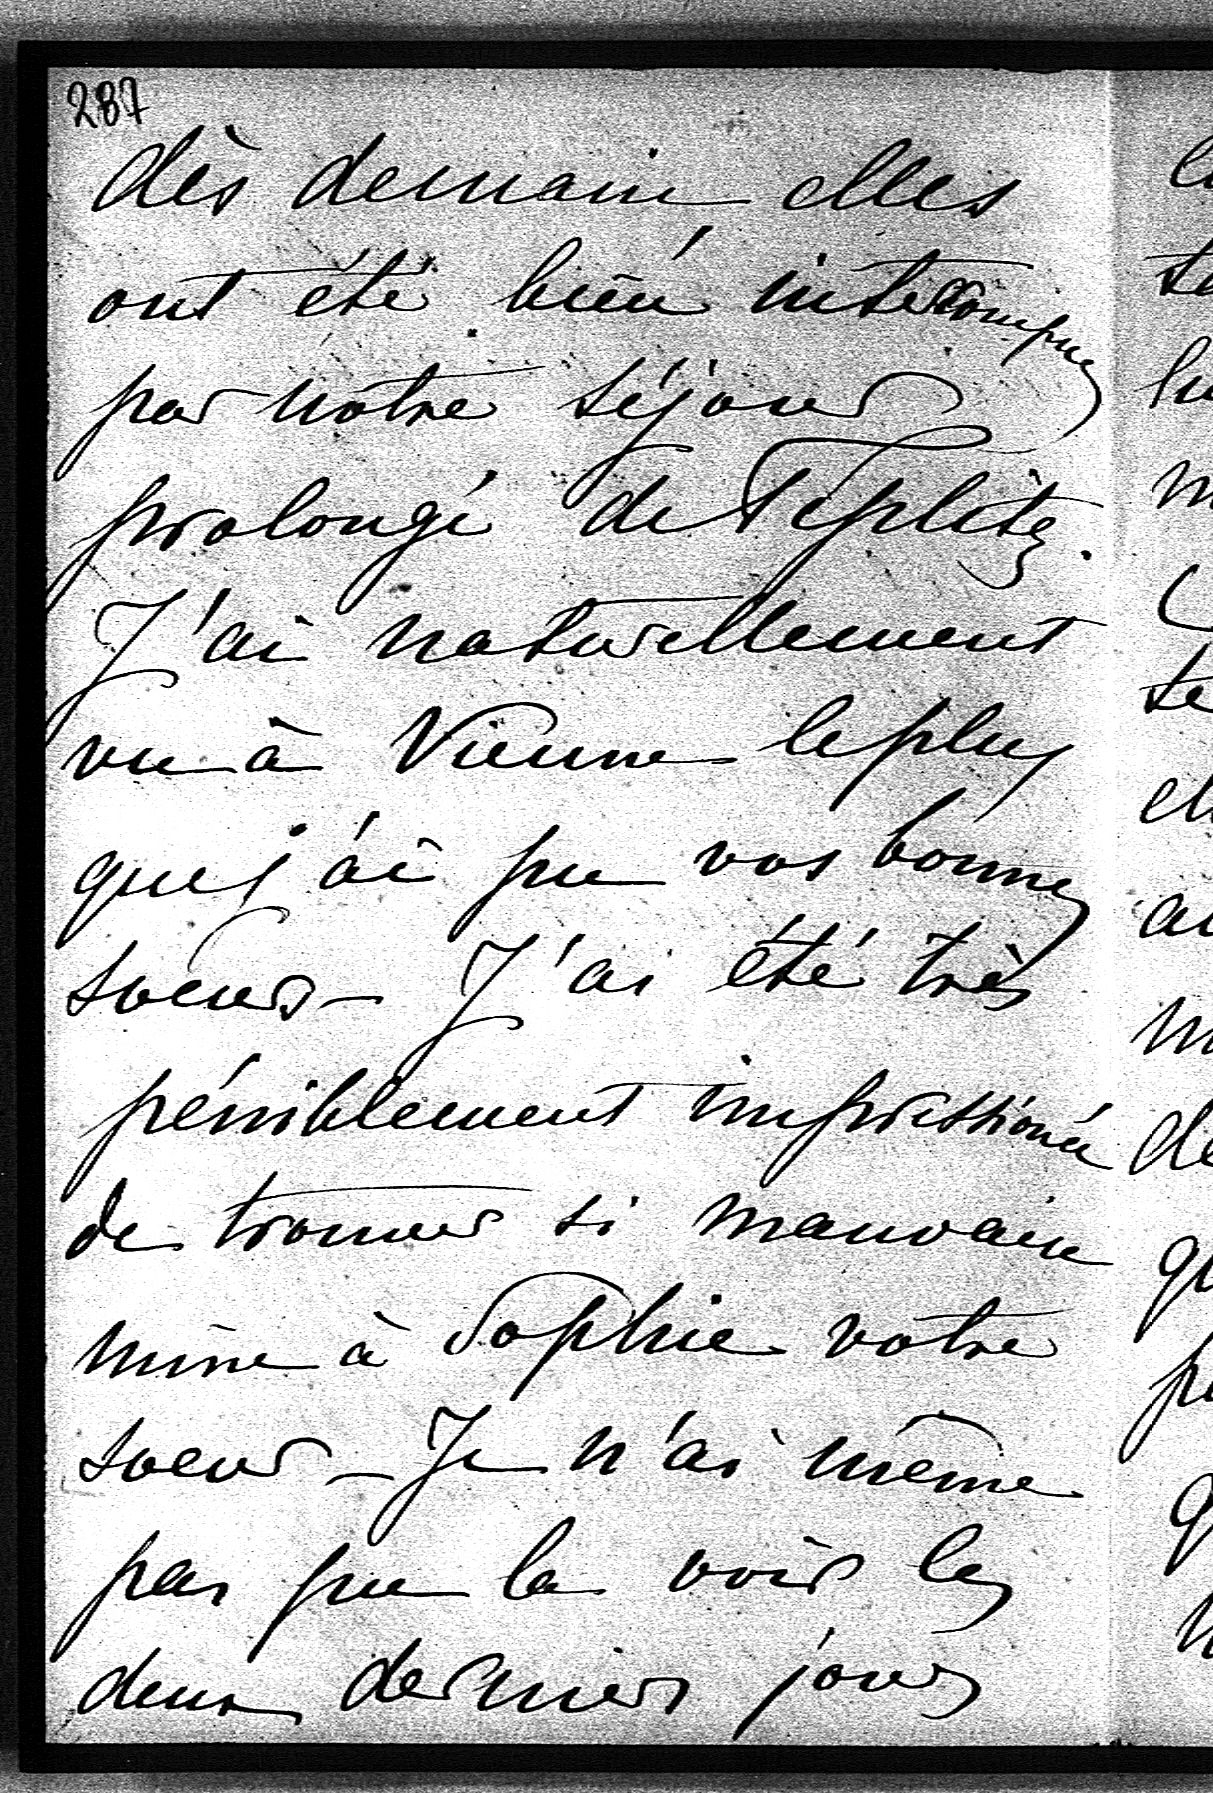 287
dès demain elles
ont été bien interrompues
par nôtre séjour
prolongé de Teplitz.
J'ai naturellement
vu à Vienne le plus
que j'ai pu vos bonnes
soeurs – J'ai été très
péniblement impressionée
de trouver si mauvaise
mine à Sophie votre
soeur – Je n'ai même
pas pu la voir les
deux derniers jours